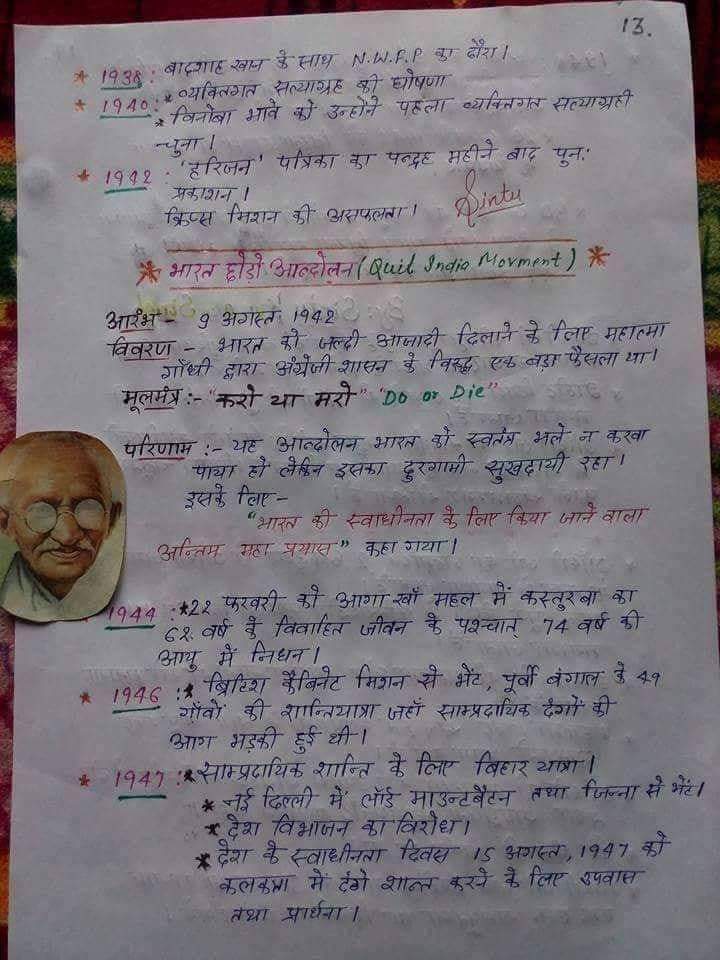 13.
* 1938 : बादशाह खान के साथ N.W.F.P का दौरा।
* 1940 : * व्यक्तिगत सत्याग्रह की घोषणा
* विनोबा भावे को उन्होंने पहला व्यक्तिगत सत्याग्रही
चुना।
* 1942 : 'हरिजन' पत्रिका का पन्द्रह महीने बाद पुनः
प्रकाशन।
क्रिप्स मिशन की असफलता।
Sintu
* भारत छोड़ो आन्दोलन (Quit India Movment) *
आरंभ - 9 अगस्त 1942
विवरण - भारत को जल्दी आजादी दिलाने के लिए महात्मा
गाँधी द्वारा अंग्रेजी शासन के विरुद्ध एक बड़ा फैसला था।
मूलमंत्र :- "करो या मरो" "Do or Die"
परिणाम :- यह आन्दोलन भारत को स्वतंत्र भले न करवा
पाया हो लेकिन इसका दुरगामी सुखदायी रहा।
इसके लिए -
"भारत की स्वाधीनता के लिए किया जाने वाला
अन्तिम महा प्रयास" कहा गया।
1944 : * 22 फरवरी को आगा खाँ महल में कस्तुरबा का
62 वर्ष के विवाहित जीवन के पश्चात् 74 वर्ष की
आयु में निधन।
* 1946 : * ब्रिटिश कैबिनेट मिशन से भेंट, पूर्वी बंगाल के 49
गाँवों की शान्तियात्रा जहाँ साम्प्रदायिक दंगों की
आग भड़की हुई थी।
* 1947 : * साम्प्रदायिक शान्ति के लिए बिहार यात्रा।
* नई दिल्ली में लॉर्ड माउन्टबैटन तथा जिन्ना से भेंट।
* देश विभाजन का विरोध।
* देश के स्वाधीनता दिवस 15 अगस्त, 1947 को
कलकत्ता में दंगे शान्त करने के लिए उपवास
तथा प्रार्थना।